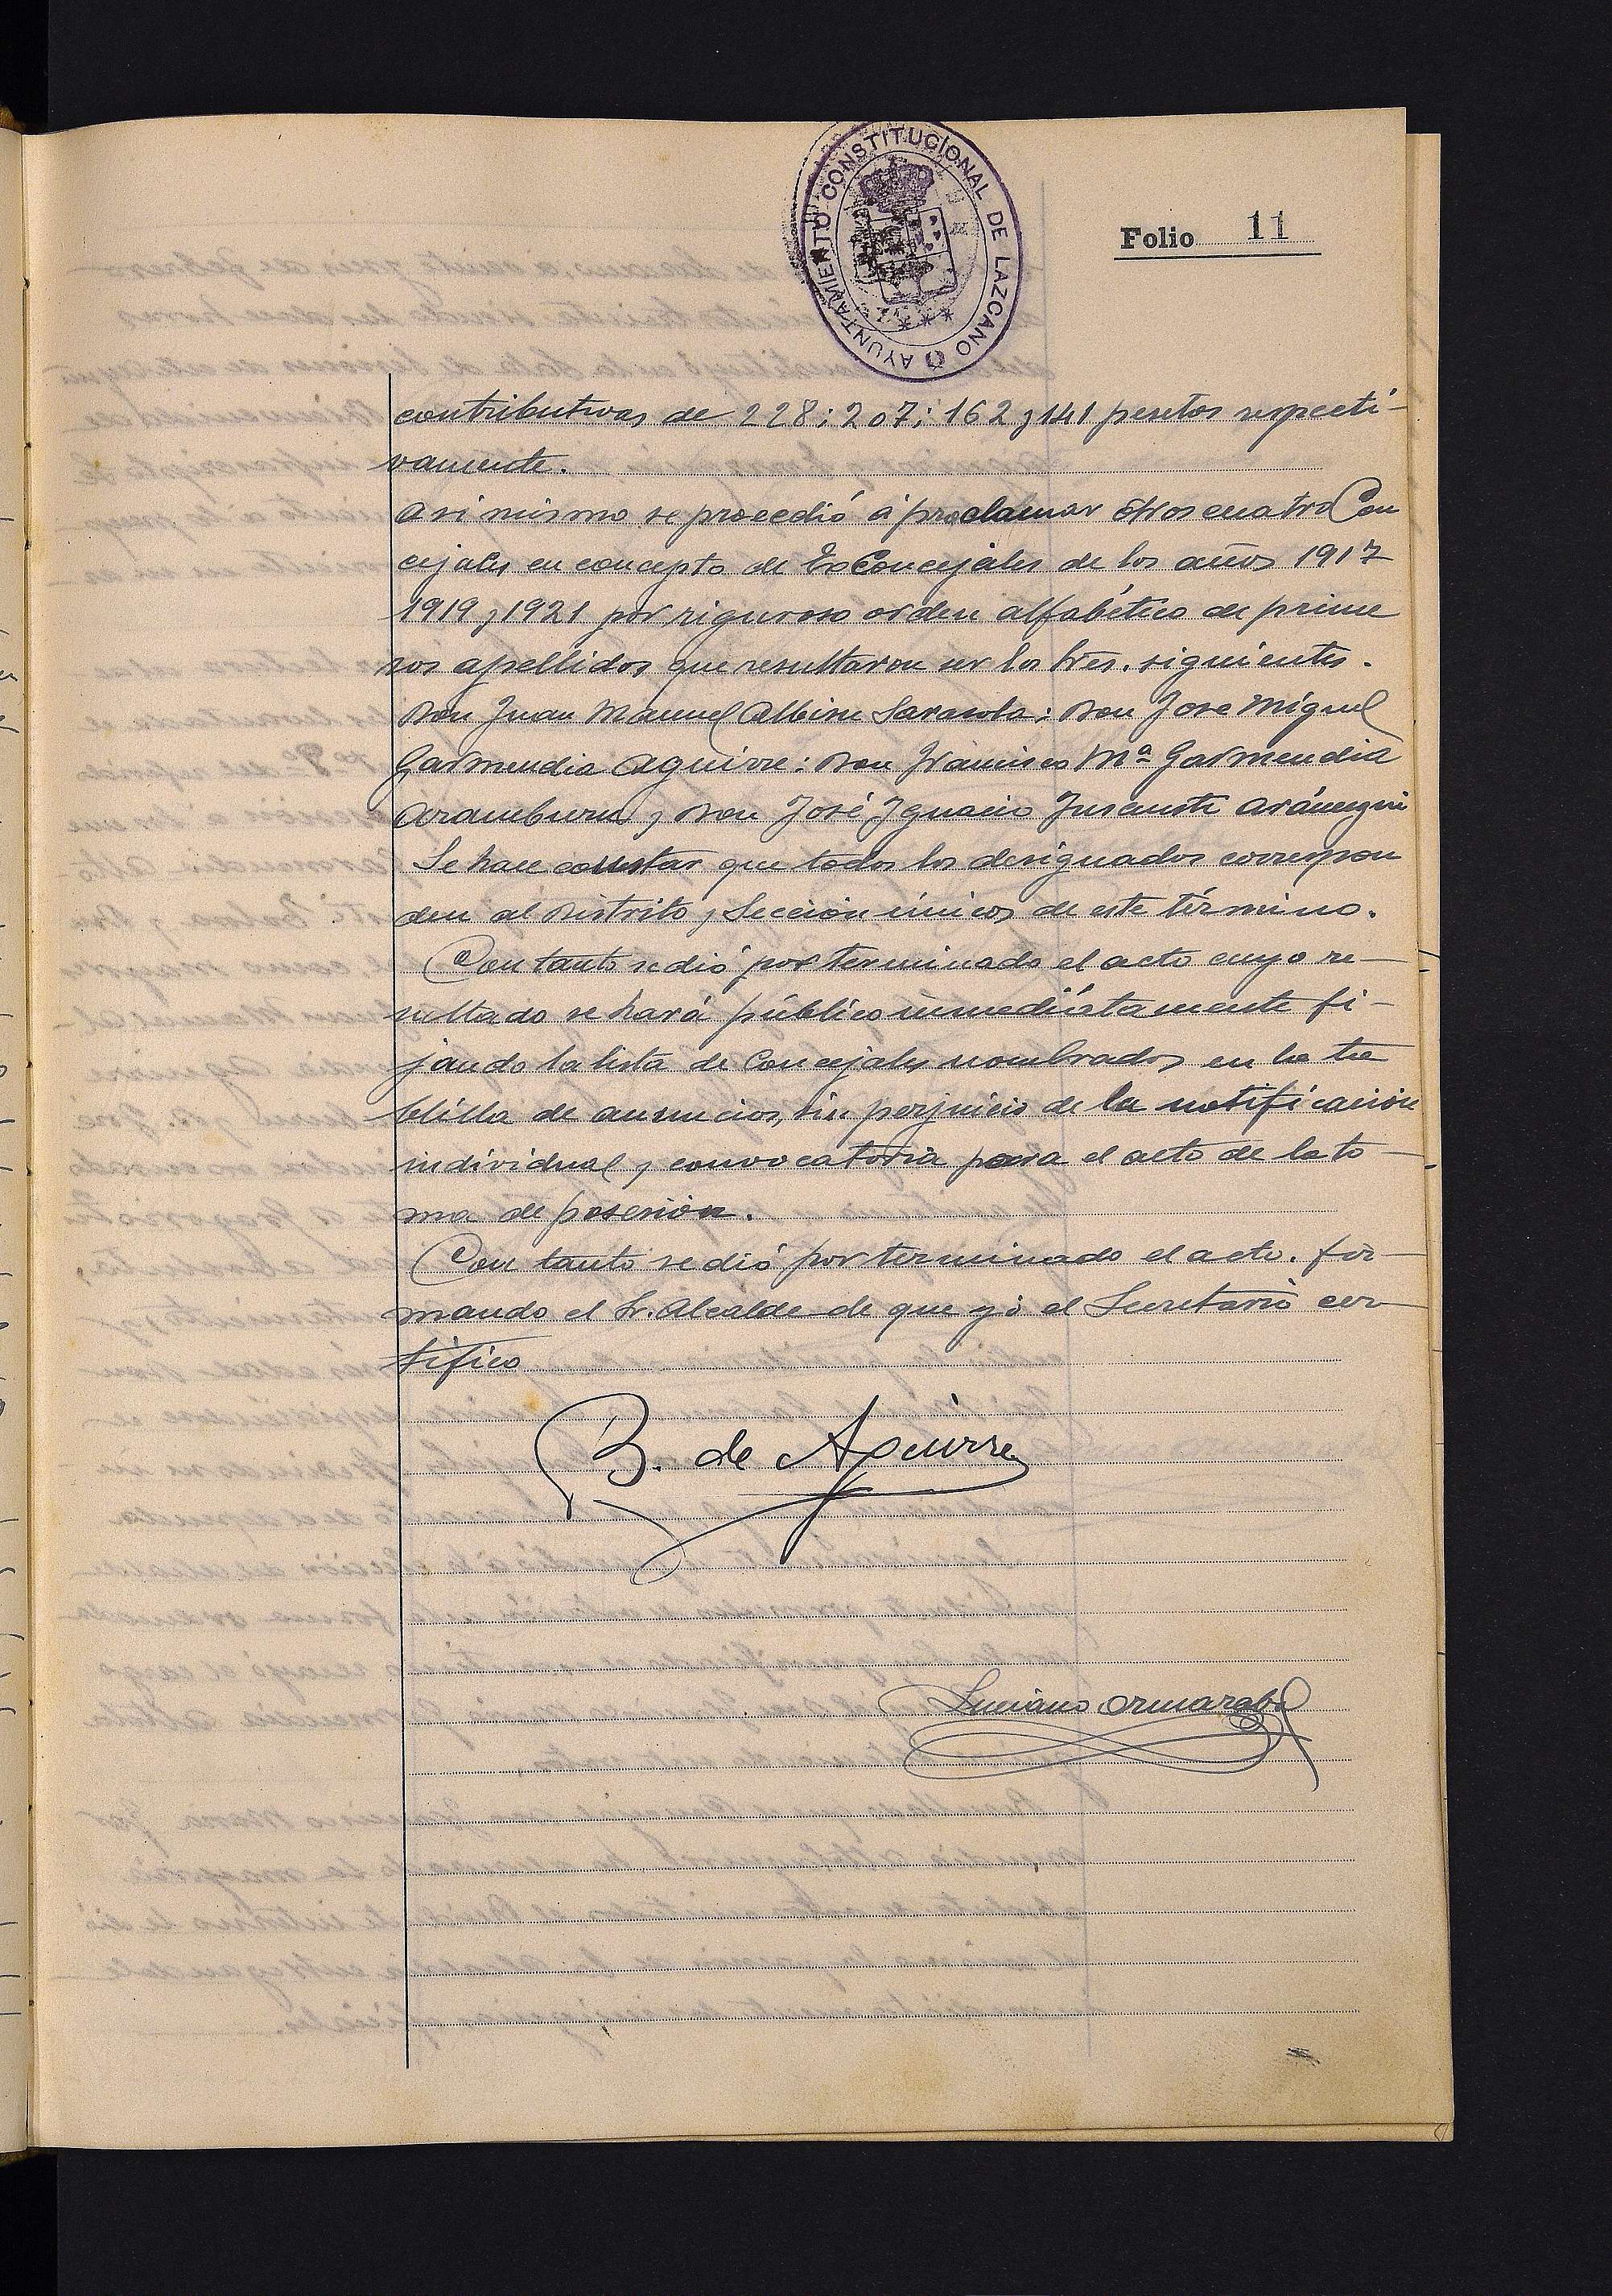 AYUNTAMIENTO CONSTITUCIONAL DE LAZCANO
Folio 11
contributivas de 228; 207; 162 y 141 pesetas respecti-
vamente.
Asi mismo se procedió á proclamar otros cuatro Con
cejales en concepto de Ex Concejales de los años 1917
1919 y 1921 por riguroso orden alfabético de prime
ros apellidos que resultaron ser los tres. siguientes.
Don Juan Manuel Albisu Sarasola: Don Jose Miguel
Garmendia Aguirre: Don Francisco Mª Garmendia
Aramburu y Don José Ignacio Insausti Aramegui
Se hace constar que todos los designados correspon
den al Distrito y Sección únicos de este término.
Con tanto se dió por terminado el acto cuyo re-
sultado se hará público inmediatamente fi-
jando la lista de Concejales nombrados en la ta
blilla de anuncios, sin perjuicio de la notificación
individual y convocatoria para el acto de la to-
ma de posesión.
Con tanto se dió por terminado el acto. fir-
mando el Sr. Alcalde de que yó el Secretario cer-
tifico
B. de Aguirre
Luciano Ormazabal